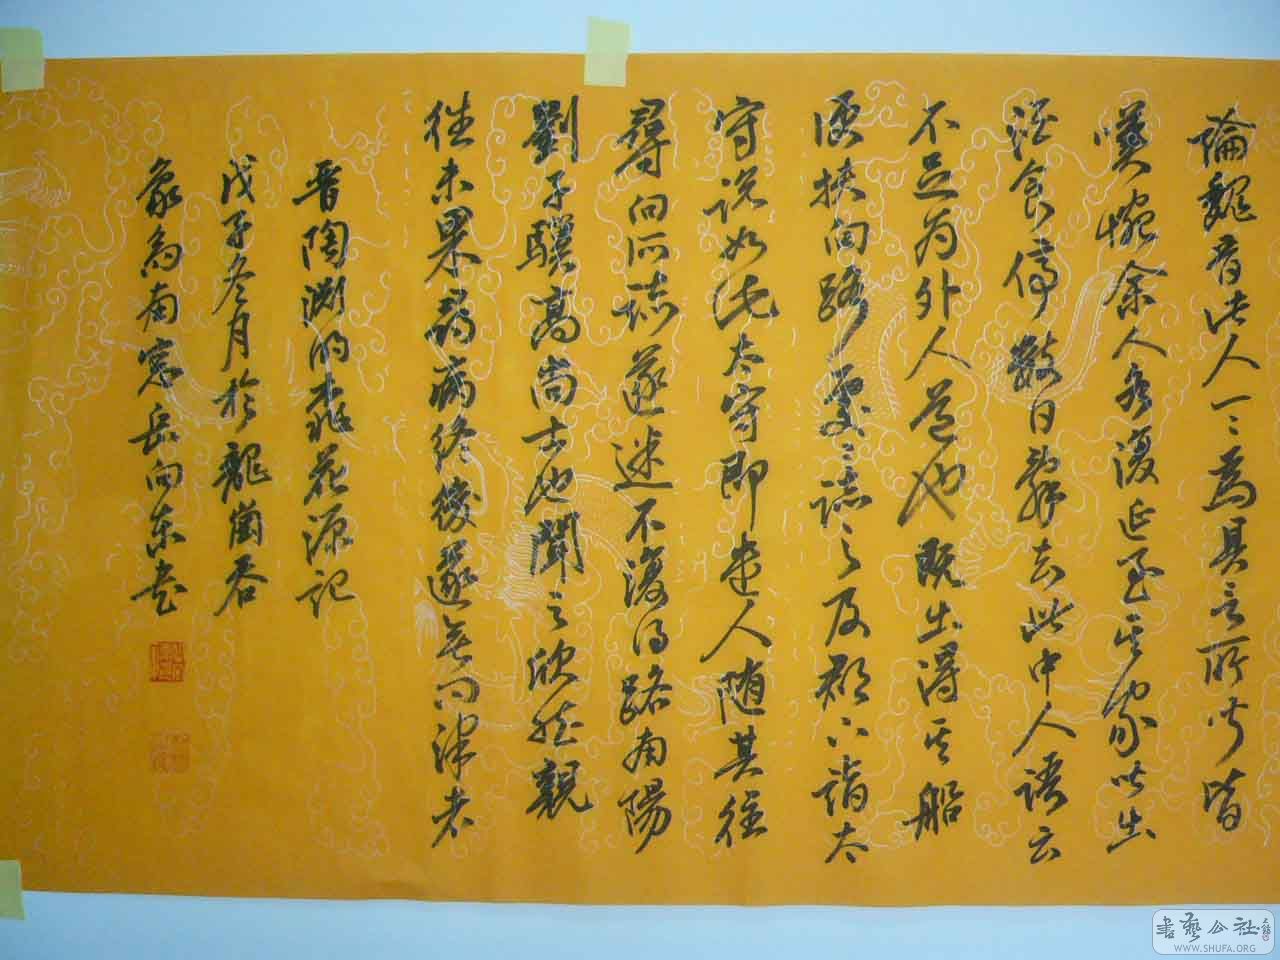 論魏晉此人一〻為具言所聞皆
嘆惋余人各復延至其家皆出
酒食停數日辭去此中人語云
不足為外人道也既出得其船
便扶向路處〻誌之及郡下詣太
守说如此太守即遣人随其往
尋向所誌遂迷不復得路南陽
劉子驥高尚士也聞之欣然親
往未果尋病終後遂無问津者
晉陶淵明桃花源記
戊子冬月於龍崗
南窓岳向東書
書藝公社
WWW.SHUFA.ORG